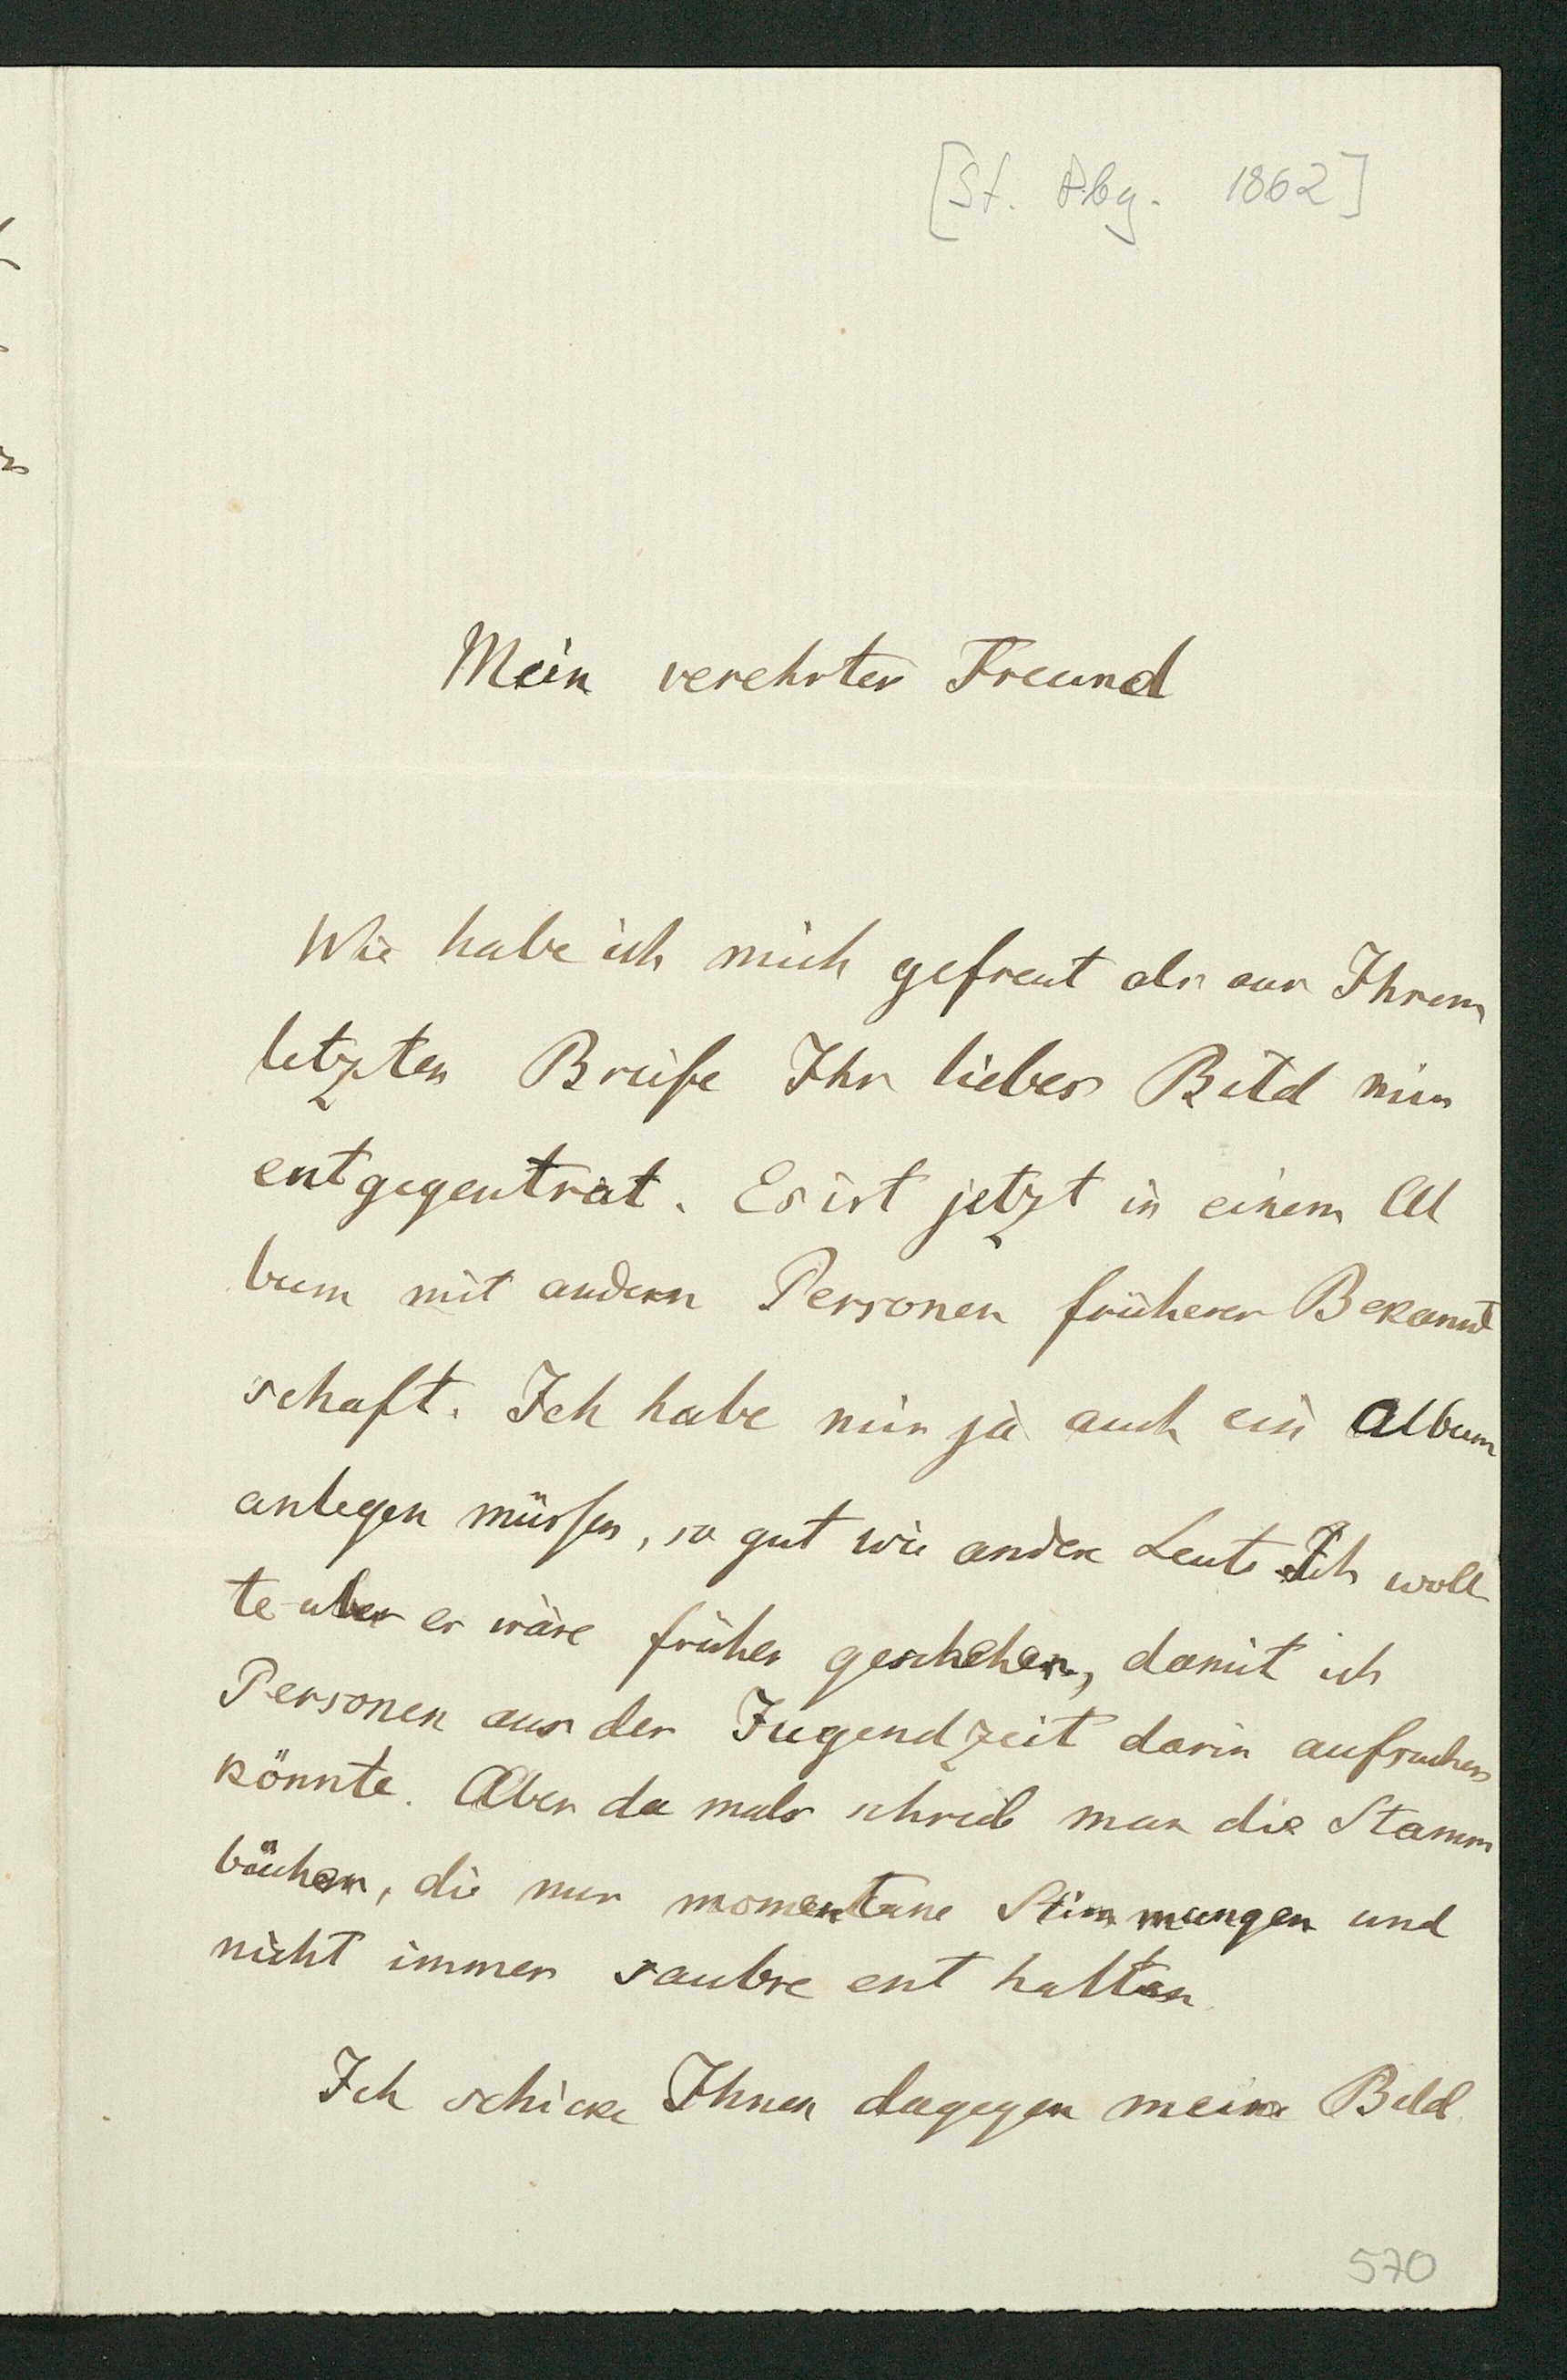 [St. Pbg. 1862]
Mein verehrter Freund
Wie habe ich mich gefreut als aus Ihrem
letzten Briefe Ihr liebes Bild mir
entgegentrat. Es ist jetzt in einem Al
bum mit andern Personen früherer Bekannt
schaft. Ich habe mir ja auch ein Album
anlegen müssen, so gut wie andere Leute. Ich woll
te aber es wäre früher geschehen, damit ich
Personen aus der Jugendzeit darin aufsuchen
könnte. Aber da mals schrieb man die Stamm
bücher, die nur momentane Stimmungen und
nicht immer saubre ent halten
Ich schicke Ihnen dagegen mein Bild
570